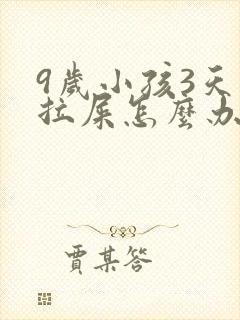 9歲小孩3天
拉屎怎麼办
賈某答